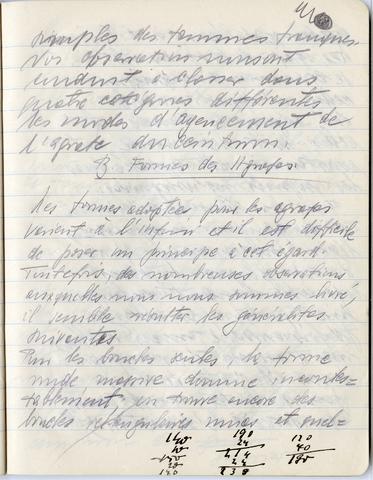 simples des femmes franques.
Nos observations nous ont
conduit à classer dans
quatre catégories différentes
les modes d'agencement de
l'agrafe du ceinturon.
B Formes des Agrafes.
Les formes adoptées pour les agrafes
varient à l'infini et il est difficile
de poser un principe à cet égard.
Toutefois, des nombreuses observations
auxquelles nous nous sommes livré,
il semble résulter les généralités
suivantes
Pour les boucles seules, la forme
ronde massive domine incontes=
tablement, on trouve encore des
boucles rectangulaires unies et quel=
140 190 120
24 40
214
24
120 238